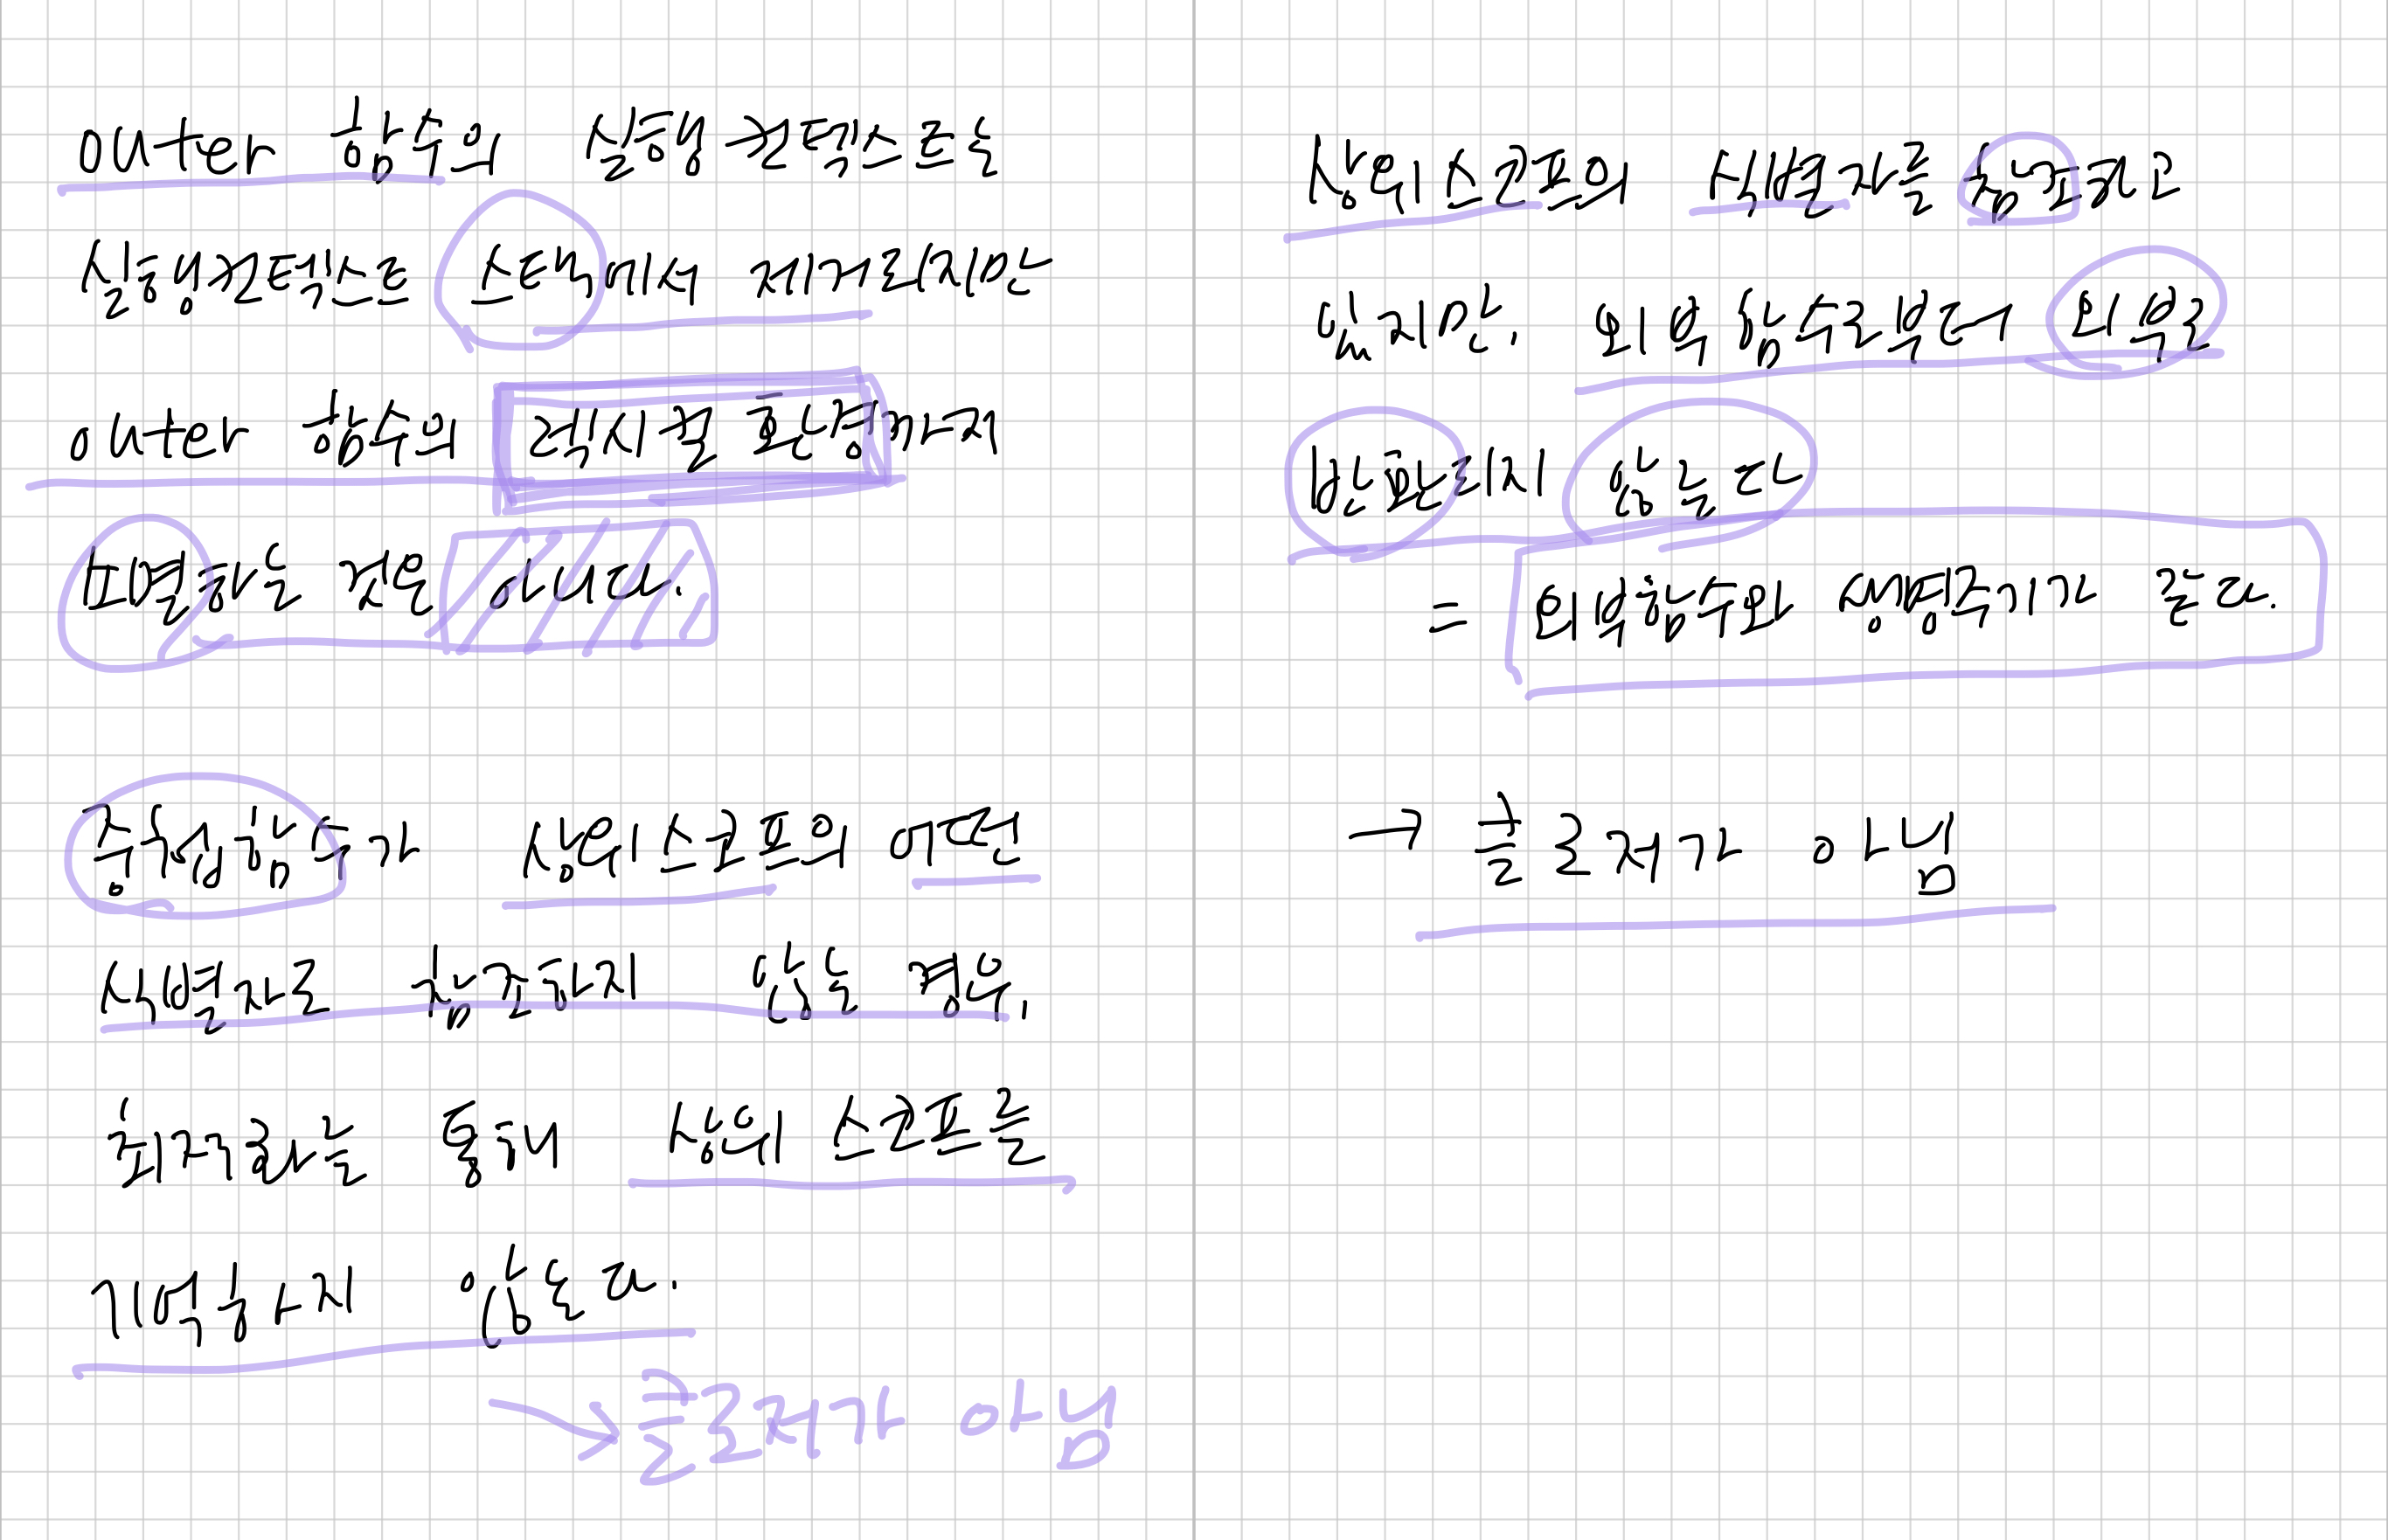 outer 함수의 실행 컨텍스트는
실행 컨텍스트 스택에서 제거되지만
outer 함수의 렉시컬 환경까지
소멸하는 것은 아니다.
중첩 함수가 상위 스코프의 어떤
식별자도 참조하지 않는 경우,
최적화를 통해 상위 스코프를
기억하지 않는다.
→ 클로저가 아님
상위 스코프의 식별자를 참조하고
있지만, 외부 함수로부터 외부로
반환되지 않는다
= 외부 함수와 생명주기가 같다.
→ 클로저가 아님